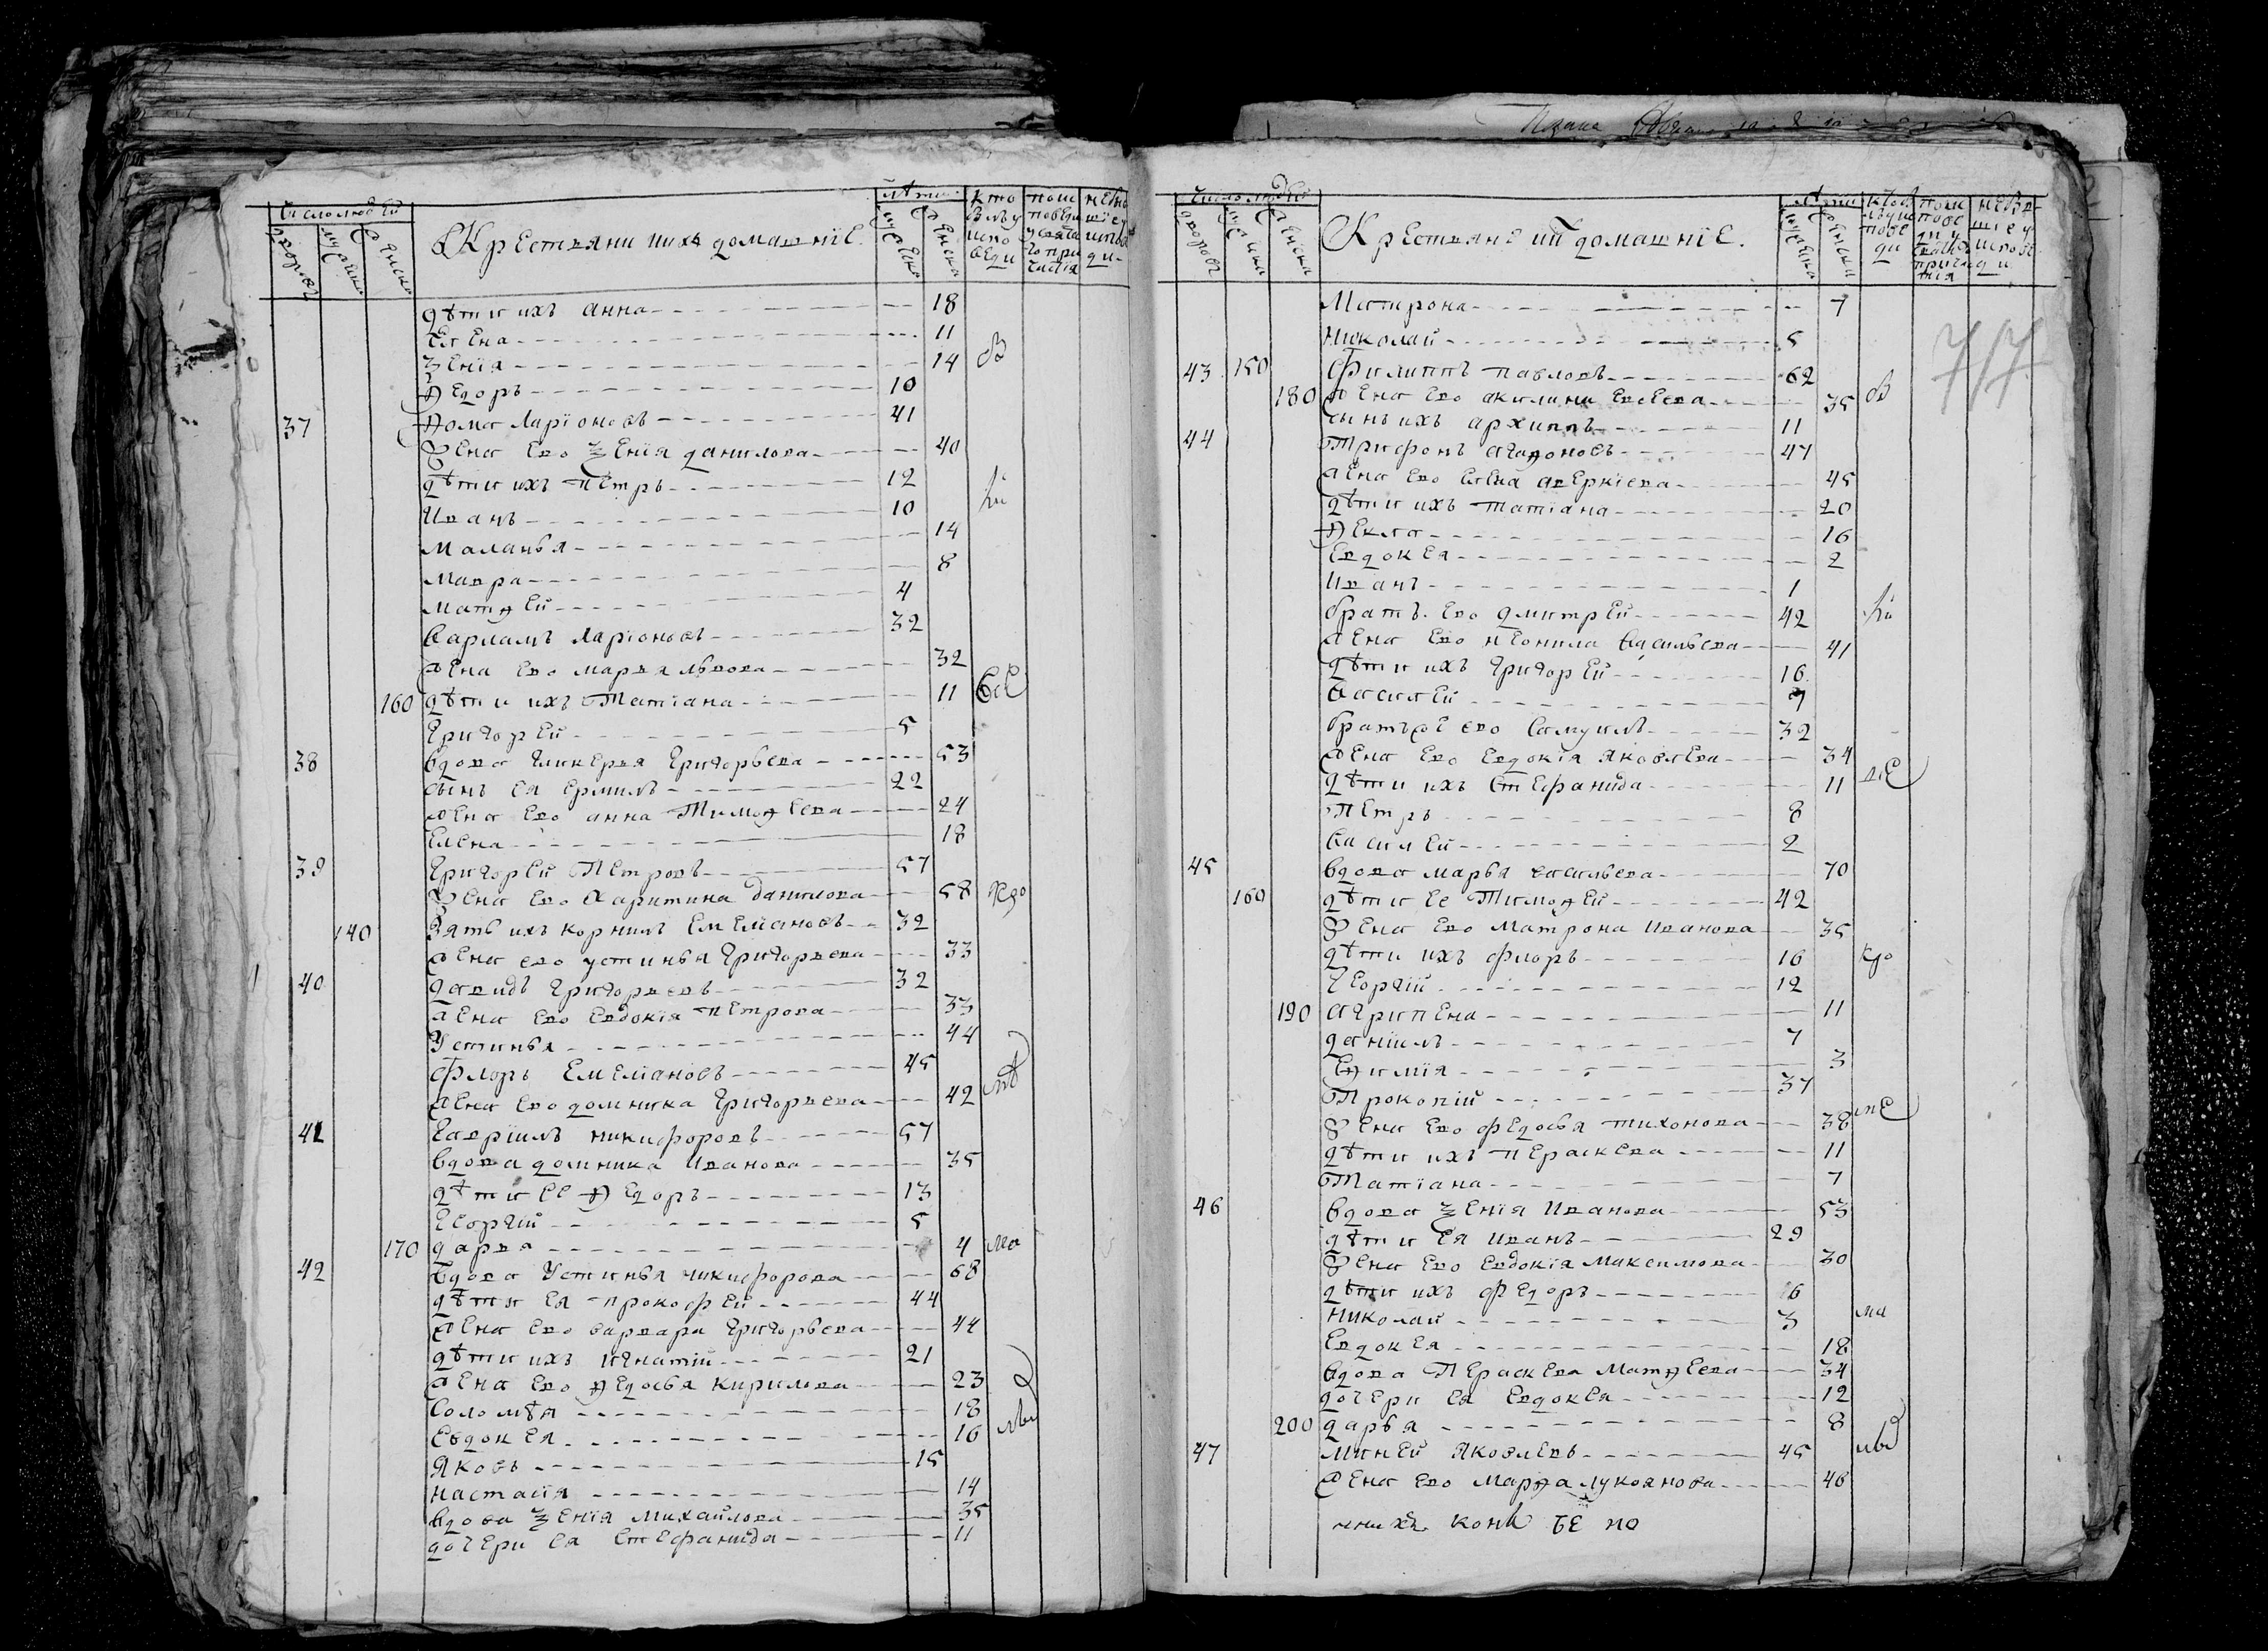 число людей
дворовъ
мужеска
женска
Крестьяни и ихъ домашнїе.
лѣти
мужеска
женска
кто былъ у испо веди
дѣти ихъ анна 18
Елена 11
Ѯенїя 14
Ѳедоръ 10
37 Ѳома Ларїоновъ 41
Жена Ево Ѯенїя данилова 40
дѣти ихъ Петръ 12
Иванъ 10
Маланья 14
Мавра 8
Матѳей 4
варламъ Ларїоновъ 32
жена Ево марья львова 32
160 дѣти ихъ Татїана 11
Григорей 5
38 вдова гликерья Григорьева 53
сынъ Ея Ермилъ 22
жена Ево анна Тимоѳеева 24
Елена 18
39 Григорей Петровъ 57
Жена Ево Харитина данилова 58
140 Зять ихъ корнилъ Емельяновъ 32
жена ево устинья Григорьева 33
40 давидъ Григорьевъ 32
жена Ево Евдокїя Петрова 33
Устинья 44
Флоръ Емельяновъ 45
жена Ево домника Григорьева 42
41 Гаврїилъ никифоровъ 57
вдова домника Иванова 35
дѣти Ее Ѳедоръ 13
Георгїй 5
170 дарья 4
42 вдова Устинья никифорова 68
дѣти Ея прокофей 44
жена Ево варвара Григорьева 44
дѣти ихъ игнатїй 21
жена Ево Ѳедосья кирилова 23
Соломѣя 18
Евдокея 16
Яковъ 15
настасїя 14
вдова Ѯенїя Михайлова 35
дочери Ея Стефанида 11
число людей
дворовъ
мужеска
женска
Крестьяне и и домашнїе.
лѣти
мужеска
женска
Матрона 7
Николай 5
43 150 Филиппъ павловъ 62
180 жена Ево акилина Евсеева 35
сынъ ихъ архиппъ 11
44 Трифонъ агаѳоновъ 47
жена Ево Елена аверкїева 45
дѣти ихъ татїана 20
Ѳекла 16
Евдокея 2
Иванъ 1
братъ Ево дмитрей 42
жена Ево неонила васильева 41
дѣти ихъ Григорей 16
василей 9
братъ же ево Самуилъ 32
жена Ево Евдокїя Яковлева 34
дѣти ихъ Стефанида 11
Петръ 8
василей 2
45 вдова марья васильева 70
160 дѣти Ее Тимоѳей 42
Жена Ево Матрона Иванова 35
дѣти ихъ флоръ 16
Георгїй 12
190 агрипена 11
данїилъ 7
Еѳимїя 3
Прокопїй 37
Жена Ево федосья тихонова 38
дѣти ихъ Пераскева 11
Татїана 7
46 вдова Ѯенїя Иванова 53
дѣти Ея Иванъ 29
Жена Ево Евдокїя Максимова 30
дѣти ихъ федоръ 16
николай 3
Евдокея 18
вдова Пераскева Матѳеева 34
дочери Ея Евдокея 12
200 дарья 8
47 Миней Яковлевъ 45
Жена Ево Марѳа лукоянова 46